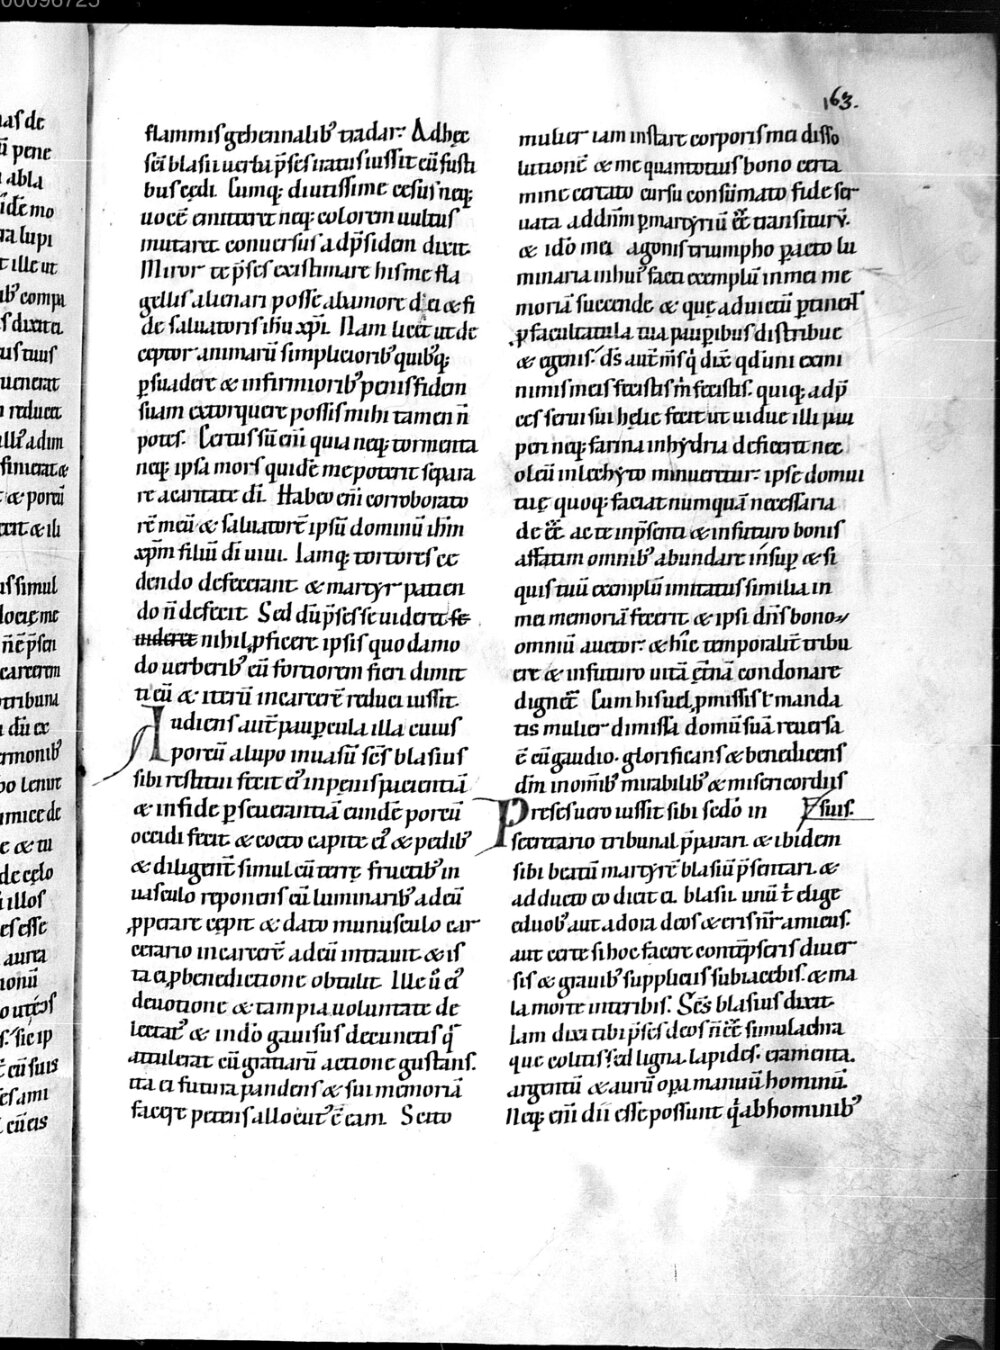 00098725
163.
flammis gehennalib' tradar. Ad hęc
sc̄i blasii uerba p̄ses iratus iussit eū fusti
bus cędi. Cumq; diutissime cesus neq;
uocē emitteret neq; colorem uultus
mutaret. conuersus ad p̄sidem dixit.
Miror te p̄ses existimare his me fla
gellis alienari posse ab amore dei & fi
de saluatoris ih̄u xp̄i. Nam licet ut de
ceptor animarū simpliciorib' quibq;
p̱suadere & infirmiorib' penis fidem
suam extorquere possis mihi tamen n̄
potes. Certus sū eni quia neq; tormenta
neq; ipsa mors quidē me poterit separa
re a caritate dī. Habeo eni corroborato
rē meū & saluatorē ipsū dominū ih̄m
xp̄m filiū dī uiui. Iamq; tortores ce
dendo defecerant & martyr patien
do n̄ defecit. Sed dū p̄ses se uideret se
uideret nihil ꝓficere ipsis quodamo
do uerberib' eū fortiorem fieri dimit
ti eū & iterū in carcerē reduci iussit.
Audiens aut̄ paup̱cula illa cuius
porcū a lupo inuasū sc̄s blasius
sibi restitui fecit ei' inpensā pacientiā
& in fide p̱seuerantiā eundē porcū
occidi fecit & cocto capite ei' & pedib'
& diligent̄ simul cū terrę fructib' in
uasculo reponens cū luminarib' ad eū
ꝓperare cępit & dato munusculo car
cerario in carcerē ad eū intrauit & is
ta ei ꝓ benedictione obtulit. Ille ū ei'
deuotione & tam pia uoluntate de
lectat' & in dn̄o gauisus de cunctis q̄
attulerat cū gratiarū actione gustans.
ita ei futura pandens & sui memoriā
facere petens allocut' ē eam. Scito
mulier iam instare corporis mei disso
lutionē & me quantotius bono certa
mine certato cursu consūmato fide ser
uata ad dn̄m p̱ martyriū eē transiturū.
& ido mei agonis triumpho p̱acto lu
minaria in hui' facti exemplū in mei me
moriā succende & quę ad uictū p̱tinent
ꝓ facultatula tua paup̱ibus distribue
& egenis. dс̄ aut̄ m̄s q̄ dix̄ qd uni ex mi
nimis meis fecistis m̄ fecistis. quiq; ad p̄
ces serui sui helię fecit ut uidue illi pau
peri neq; farina in hẏdria deficeret nec
oleū in lechẏto minueretur. ipse domui
tuę quoq; faciat numquā necessaria
de eē. ac te in p̄senti & in futuro bonis
affatim omnib' abundare insup̱ & si
quis tuū exemplū imitatus similia in
mei memoriā fecerit & ipsi dn̄s bono
omniū auctor. & hic temporalit̄ tribu
ere & in futuro uitā ęt̄nā condonare
dignet̄. Cum his uel ꝓmissis l' manda
tis mulier dimissa domū suā reuersa
ē cū gaudio. glorificans & benedicens
dm̄ in om̄ib' mirabilib' & misericordiis
suis.
Preses uero iussit sibi sedo in
secretario tribunal p̄parari. & ibidem
sibi beatū martyrē blasiū p̄sentari. &
adducto eo dicit ei. blasii. unū t̄ elige
e duob' aut adora deos & eris nr̄ amicus.
aut certe si hoc facere contēpseris diuer
sis & grauib' suppliciis subiacebis. & ma
la morte interibis. Sc̄s blasius dixit.
Iam dixi tibi p̄ses deos n̄ eē simulachra
que colitis. sed ligna. lapides. eramenta.
argentū & aurū opa manuū hominū.
Neq; eni dii esse possunt q̄ ab hominib'